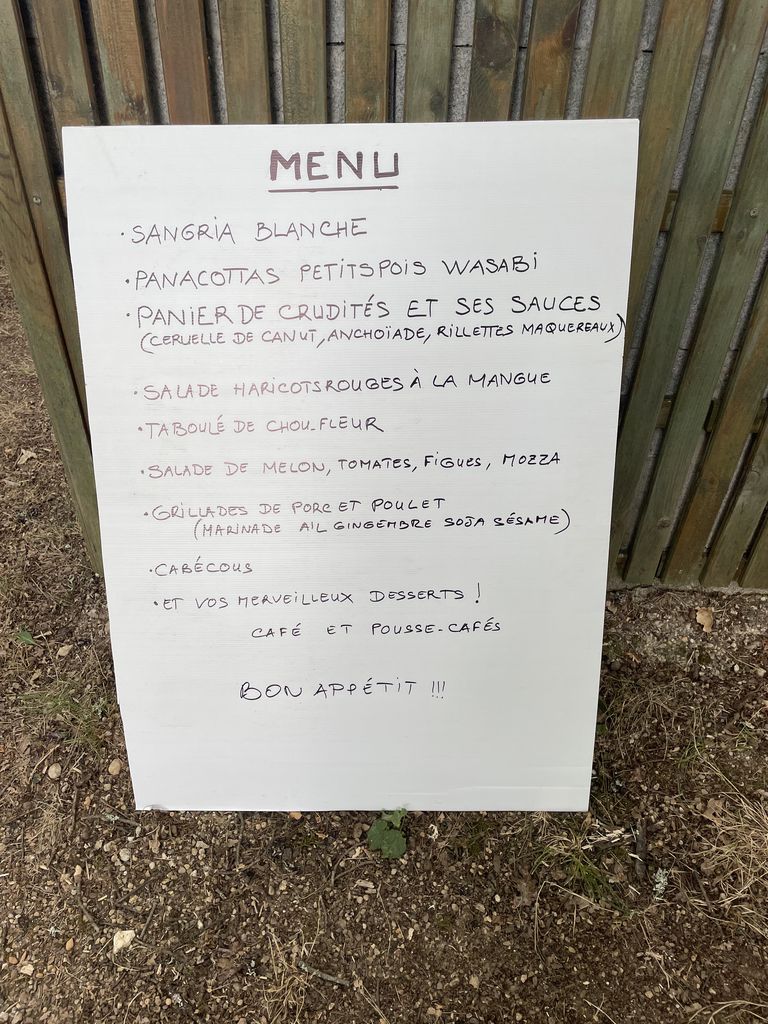 MENU
• SANGRIA BLANCHE
• PANACOTTAS PETITS POIS WASABI
• PANIER DE CRUDITÉS ET SES SAUCES
(CERVELLE DE CANUT, ANCHOÏADE, RILLETTES MAQUEREAUX)
• SALADE HARICOTS ROUGES À LA MANGUE
• TABOULÉ DE CHOU-FLEUR
• SALADE DE MELON, TOMATES, FIGUES, MOZZA
• GRILLADES DE PORC ET POULET
(MARINADE AIL GINGEMBRE SOJA SÉSAME)
• CABÉCOUS
• ET VOS MERVEILLEUX DESSERTS !
CAFÉ ET POUSSE-CAFÉS
BON APPÉTIT !!!